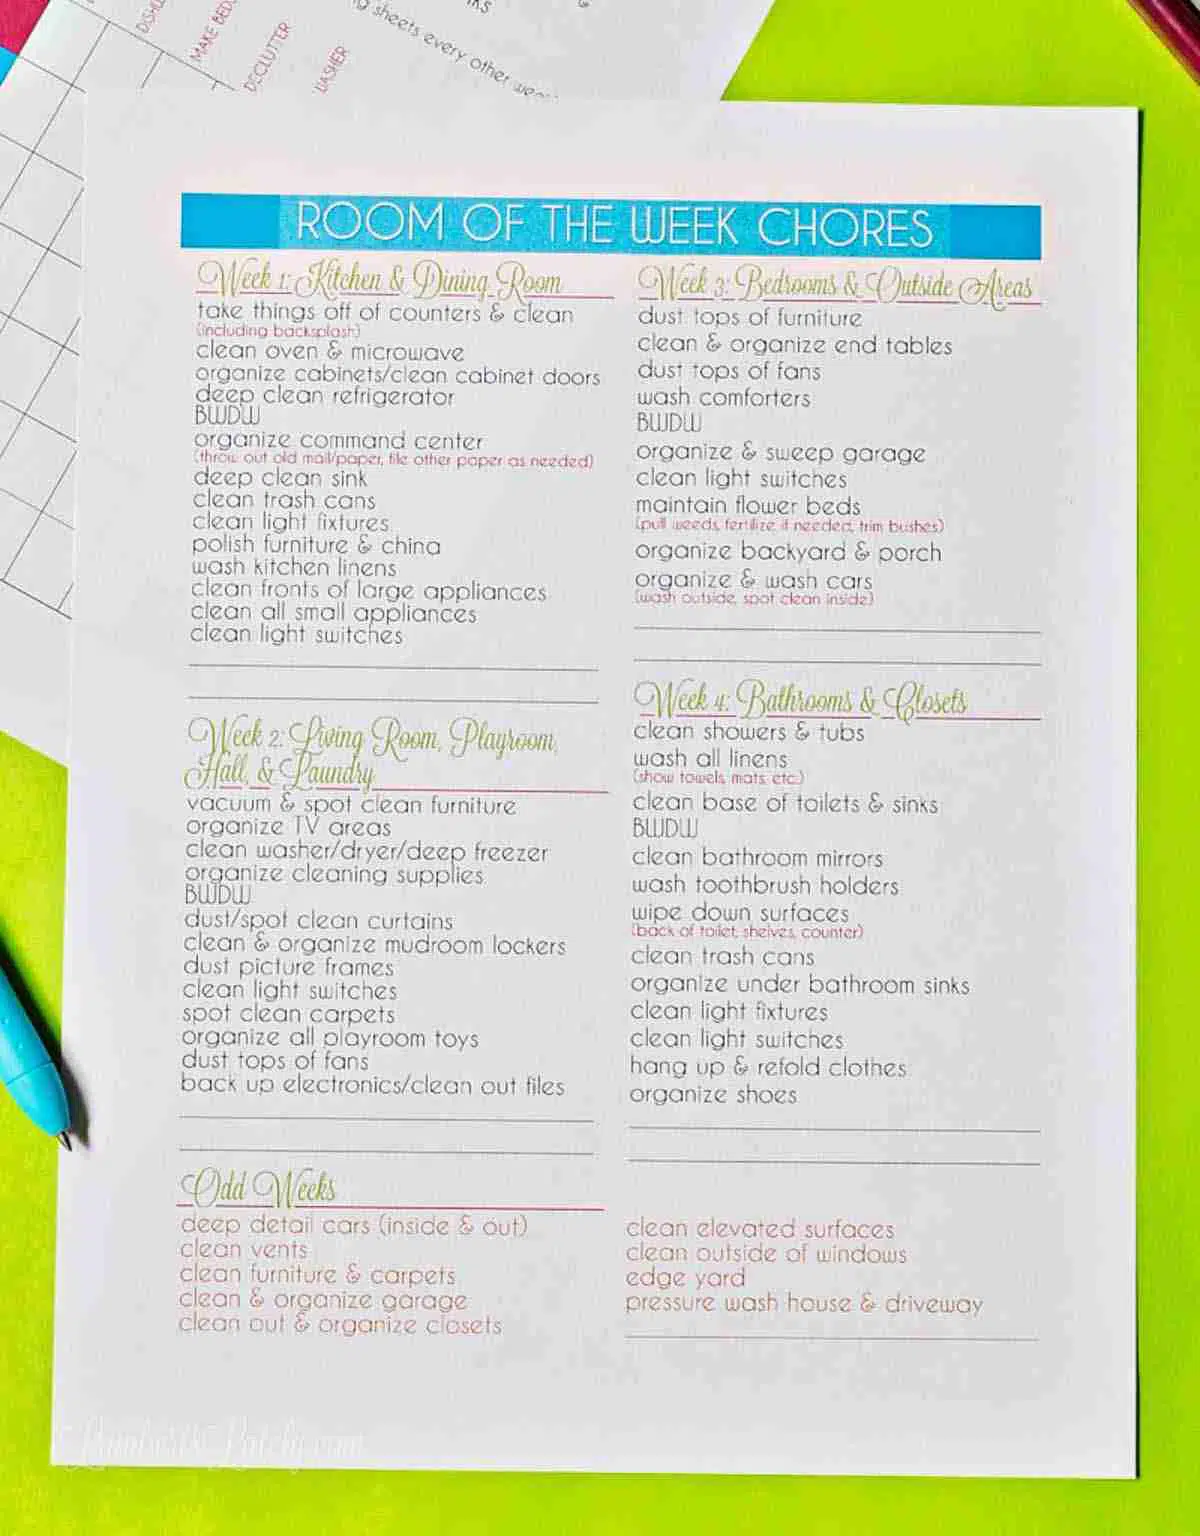 DISHE
MAKE BEDS
DECLUTTER
WASHER
g sheets every other wee
ROOM OF THE WEEK CHORES
Week 1: Kitchen & Dining Room
take things off of counters & clean
(including backsplash)
clean oven & microwave
organize cabinets/clean cabinet doors
deep clean refrigerator
BWDW
organize command center
(throw out old mail/paper, file other paper as needed)
deep clean sink
clean trash cans
clean light fixtures
polish furniture & china
wash kitchen linens
clean fronts of large appliances
clean all small appliances
clean light switches
Week 2: Living Room, Playroom,
Hall, & Laundry
vacuum & spot clean furniture
organize TV areas
clean washer/dryer/deep freezer
organize cleaning supplies
BWDW
dust/spot clean curtains
clean & organize mudroom lockers
dust picture frames
clean light switches
spot clean carpets
organize all playroom toys
dust tops of fans
back up electronics/clean out files
Week 3: Bedrooms & Outside Areas
dust tops of furniture
clean & organize end tables
dust tops of fans
wash comforters
BWDW
organize & sweep garage
clean light switches
maintain flower beds
(pull weeds, fertilize if needed, trim bushes)
organize backyard & porch
organize & wash cars
(wash outside, spot clean inside)
Week 4: Bathrooms & Closets
clean showers & tubs
wash all linens
(show towels, mats, etc.)
clean base of toilets & sinks
BWDW
clean bathroom mirrors
wash toothbrush holders
wipe down surfaces
(back of toilet, shelves, counter)
clean trash cans
organize under bathroom sinks
clean light fixtures
clean light switches
hang up & refold clothes
organize shoes
Odd Weeks
deep detail cars (inside & out)
clean vents
clean furniture & carpets
clean & organize garage
clean out & organize closets
clean elevated surfaces
clean outside of windows
edge yard
pressure wash house & driveway